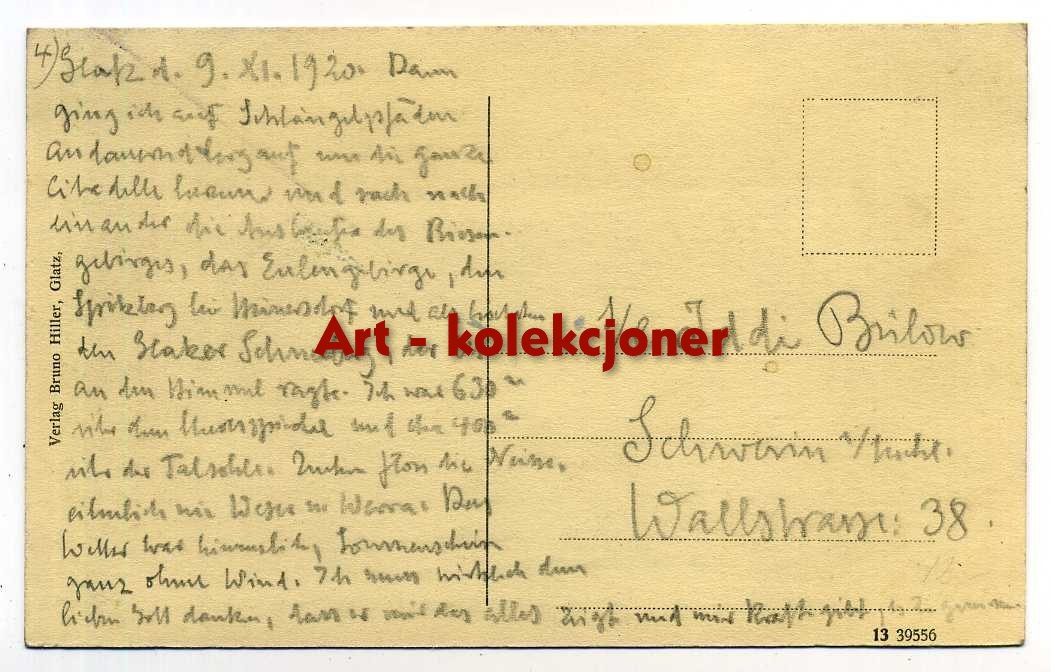 4) Glatz d. 9. XI. 1920. Dann
ging ich auf Schlängelpfaden
andauernd bergauf um die ganze
Citadelle herum und sach nach
einander die Ausläufer des Riesen-
gebirges, das Eulengebirge, den
Spitzberg bei und als
den Glatzer der
an den Himmel ragte. Ich war 630 m
über dem Meeresspiegel und etwa 400 m
über der Talsohle. Unten floss die Neisse,
ähnlich wie Weser u. Werra. Das
Wetter war himmlisch, Sonnenschein
ganz ohne Wind. Ich muss wirklich dem
lieben Gott danken, dass er mir das alles zeigt und mir Kraft gibt, es zu
Verlag Bruno Hiller, Glatz,
Art - kolekcjoner
Bülow
Schwerin i/Meckl.
Wallstrasse: 38.
13 39556